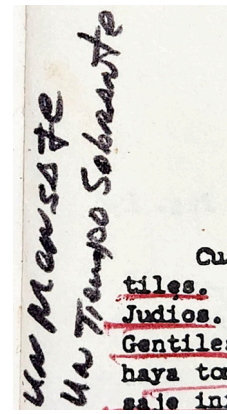 Un Mensaje
Un Tiempo Sobrante
Cu
tiles.
Judios.
Gentiles
haya to
saje in